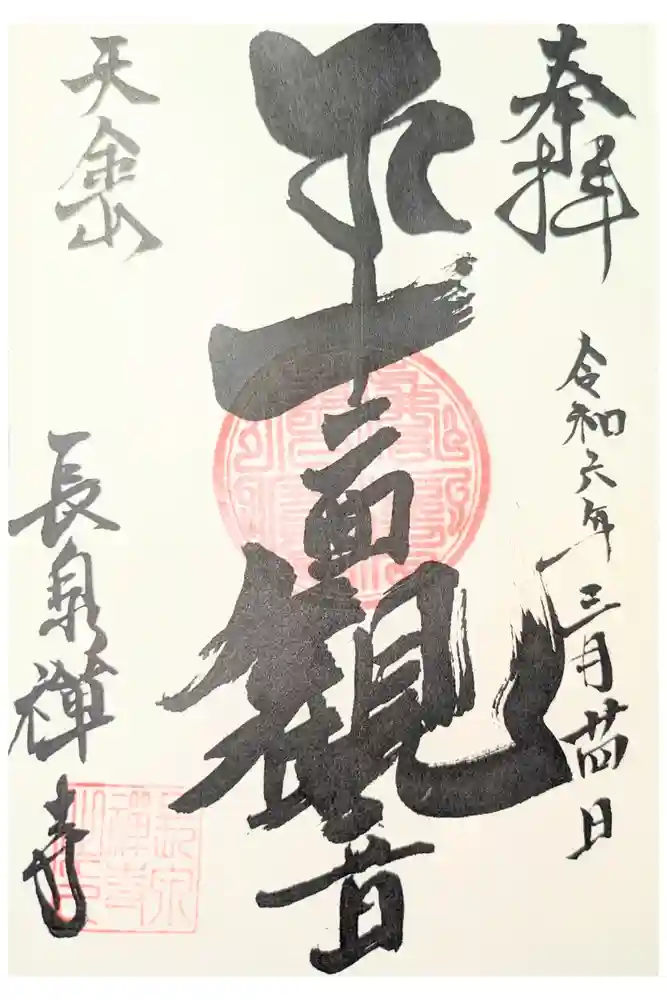 奉拝
令和六年三月廿四日
十一面観音
天山
長泉禅寺
長泉
禪寺
之印